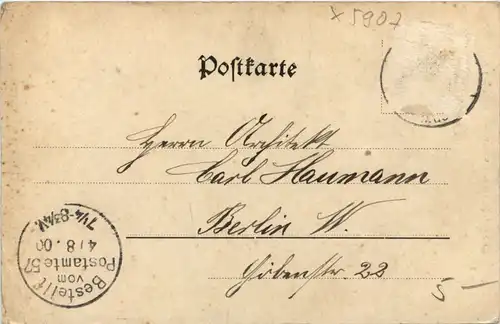 x 5907
Postkarte
Herrn Architekt
Carl Haumann
Berlin W.
Göbenstr. 22
5 —
Bestellt
vom
Postamte 57
4/8.00
7¼-8¾N.